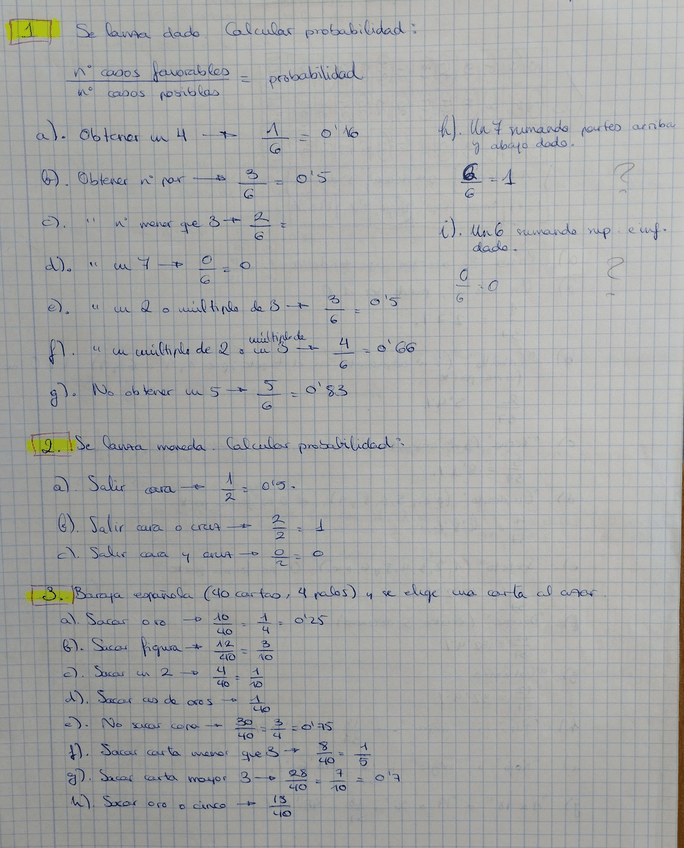 1 Se lanza dado. Calcular probabilidad:
nº casos favorables / nº casos posibles = probabilidad
a). Obtener un 4 → 1/6 = 0'16
b). Obtener nº par → 3/6 = 0'5
c). " nº menor que 3 → 2/6 =
d). " un 7 → 0/6 = 0
e). " un 2 o múltiplo de 3 → 3/6 = 0'5
f). " un múltiplo de 2 o múltiplo de un 3 → 4/6 = 0'66
g). No obtener un 5 → 5/6 = 0'83
h). Un 7 sumando partes arriba
y abajo dado.
6/6 = 1 ?
i). Un 6 sumando sup. e inf.
dado.
0/6 = 0 ?
2. Se lanza moneda. Calcular probabilidad:
a). Salir cara → 1/2 = 0'5.
b). Salir cara o cruz → 2/2 = 1
c). Salir cara y cruz → 0/2 = 0
3. Baraja española (40 cartas, 4 palos) y se elige una carta al azar.
a). Sacar oro → 10/40 = 1/4 = 0'25
b). Sacar figura → 12/40 = 3/10
c). Sacar un 2 → 4/40 = 1/10
d). Sacar as de oros → 1/40
e). No sacar copa → 30/40 = 3/4 = 0'75
f). Sacar carta menor que 3 → 8/40 = 1/5
g). Sacar carta mayor 3 → 28/40 = 7/10 = 0'7
h). Sacar oro o cinco → 13/40